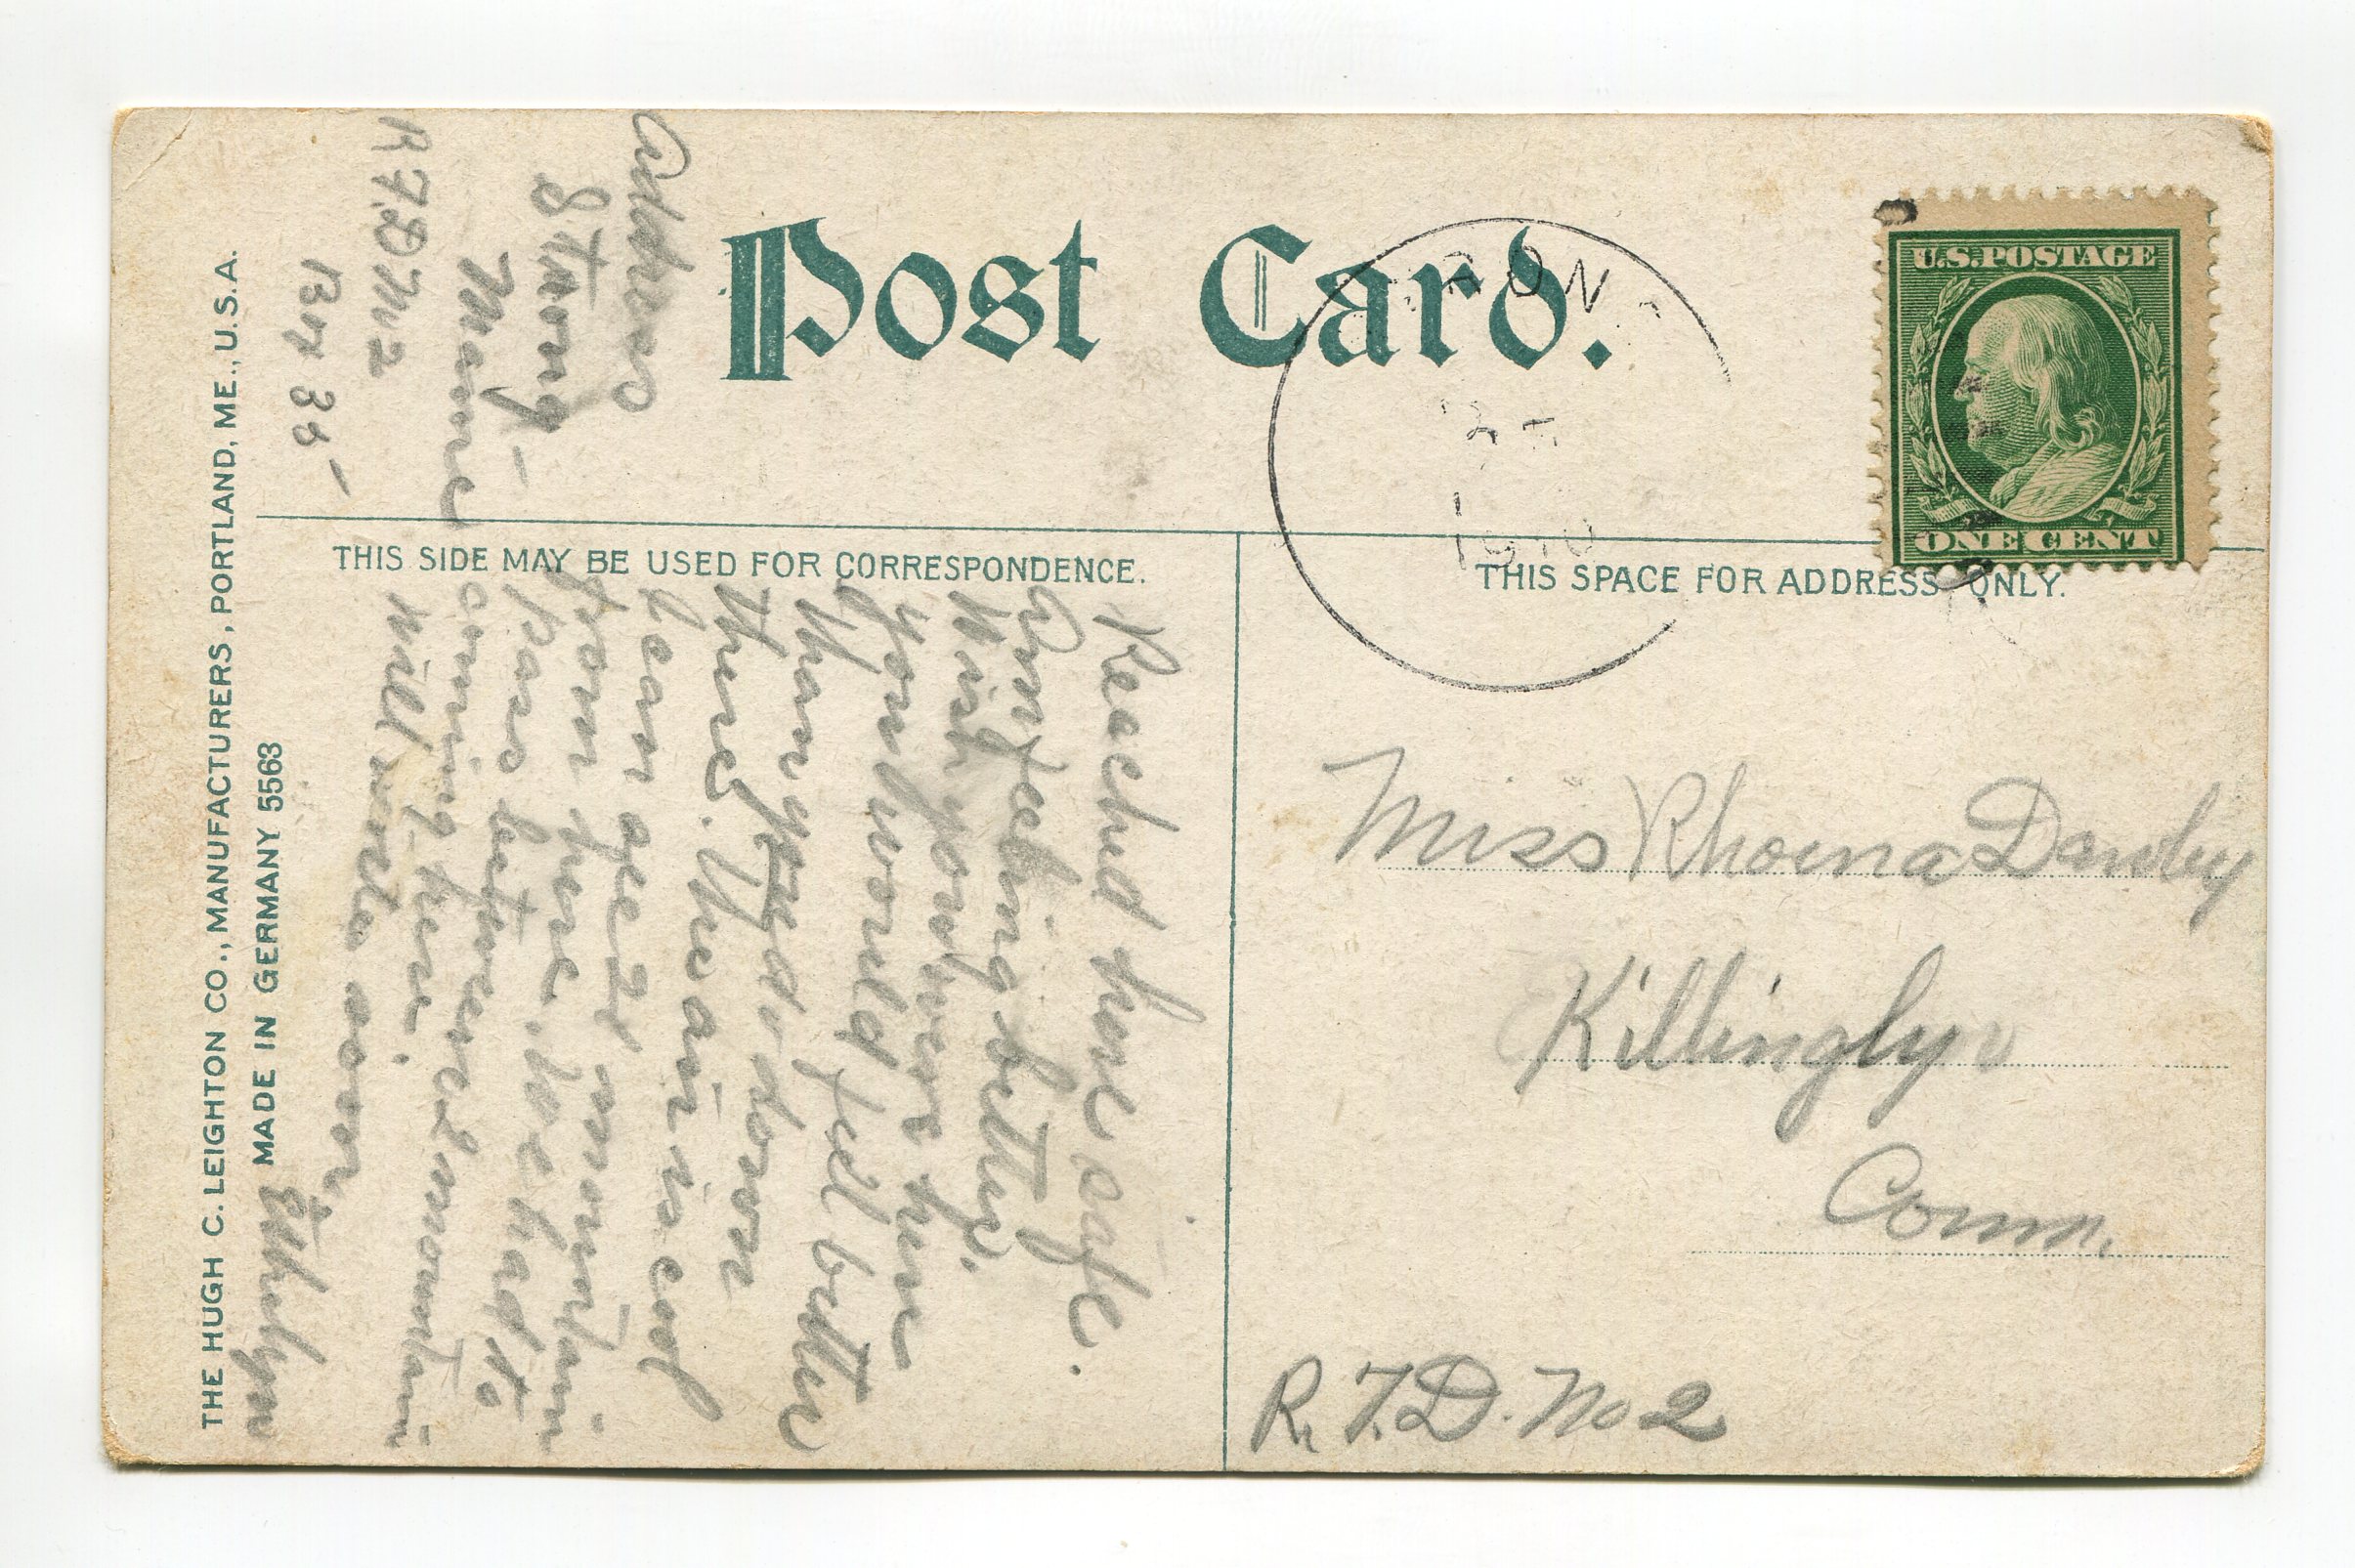 Post Card.
U.S. POSTAGE
ONE CENT
RON
1910
THIS SIDE MAY BE USED FOR CORRESPONDENCE.
THIS SPACE FOR ADDRESS ONLY.
THE HUGH C. LEIGHTON CO., MANUFACTURERS, PORTLAND, ME., U.S.A.
MADE IN GERMANY 5563
Reached here safe.
Am feeling better,
Wish you were here
you would feel better
than you do down
there. The air is cool
can see mountain
from here. We had to
pass between mountain
coming here.
Will write soon
Ethelyn
Address
Strong
Maine
R F D No 2
Box 35
Miss Rhoena
Killingly
Conn.
R. F. D. No 2